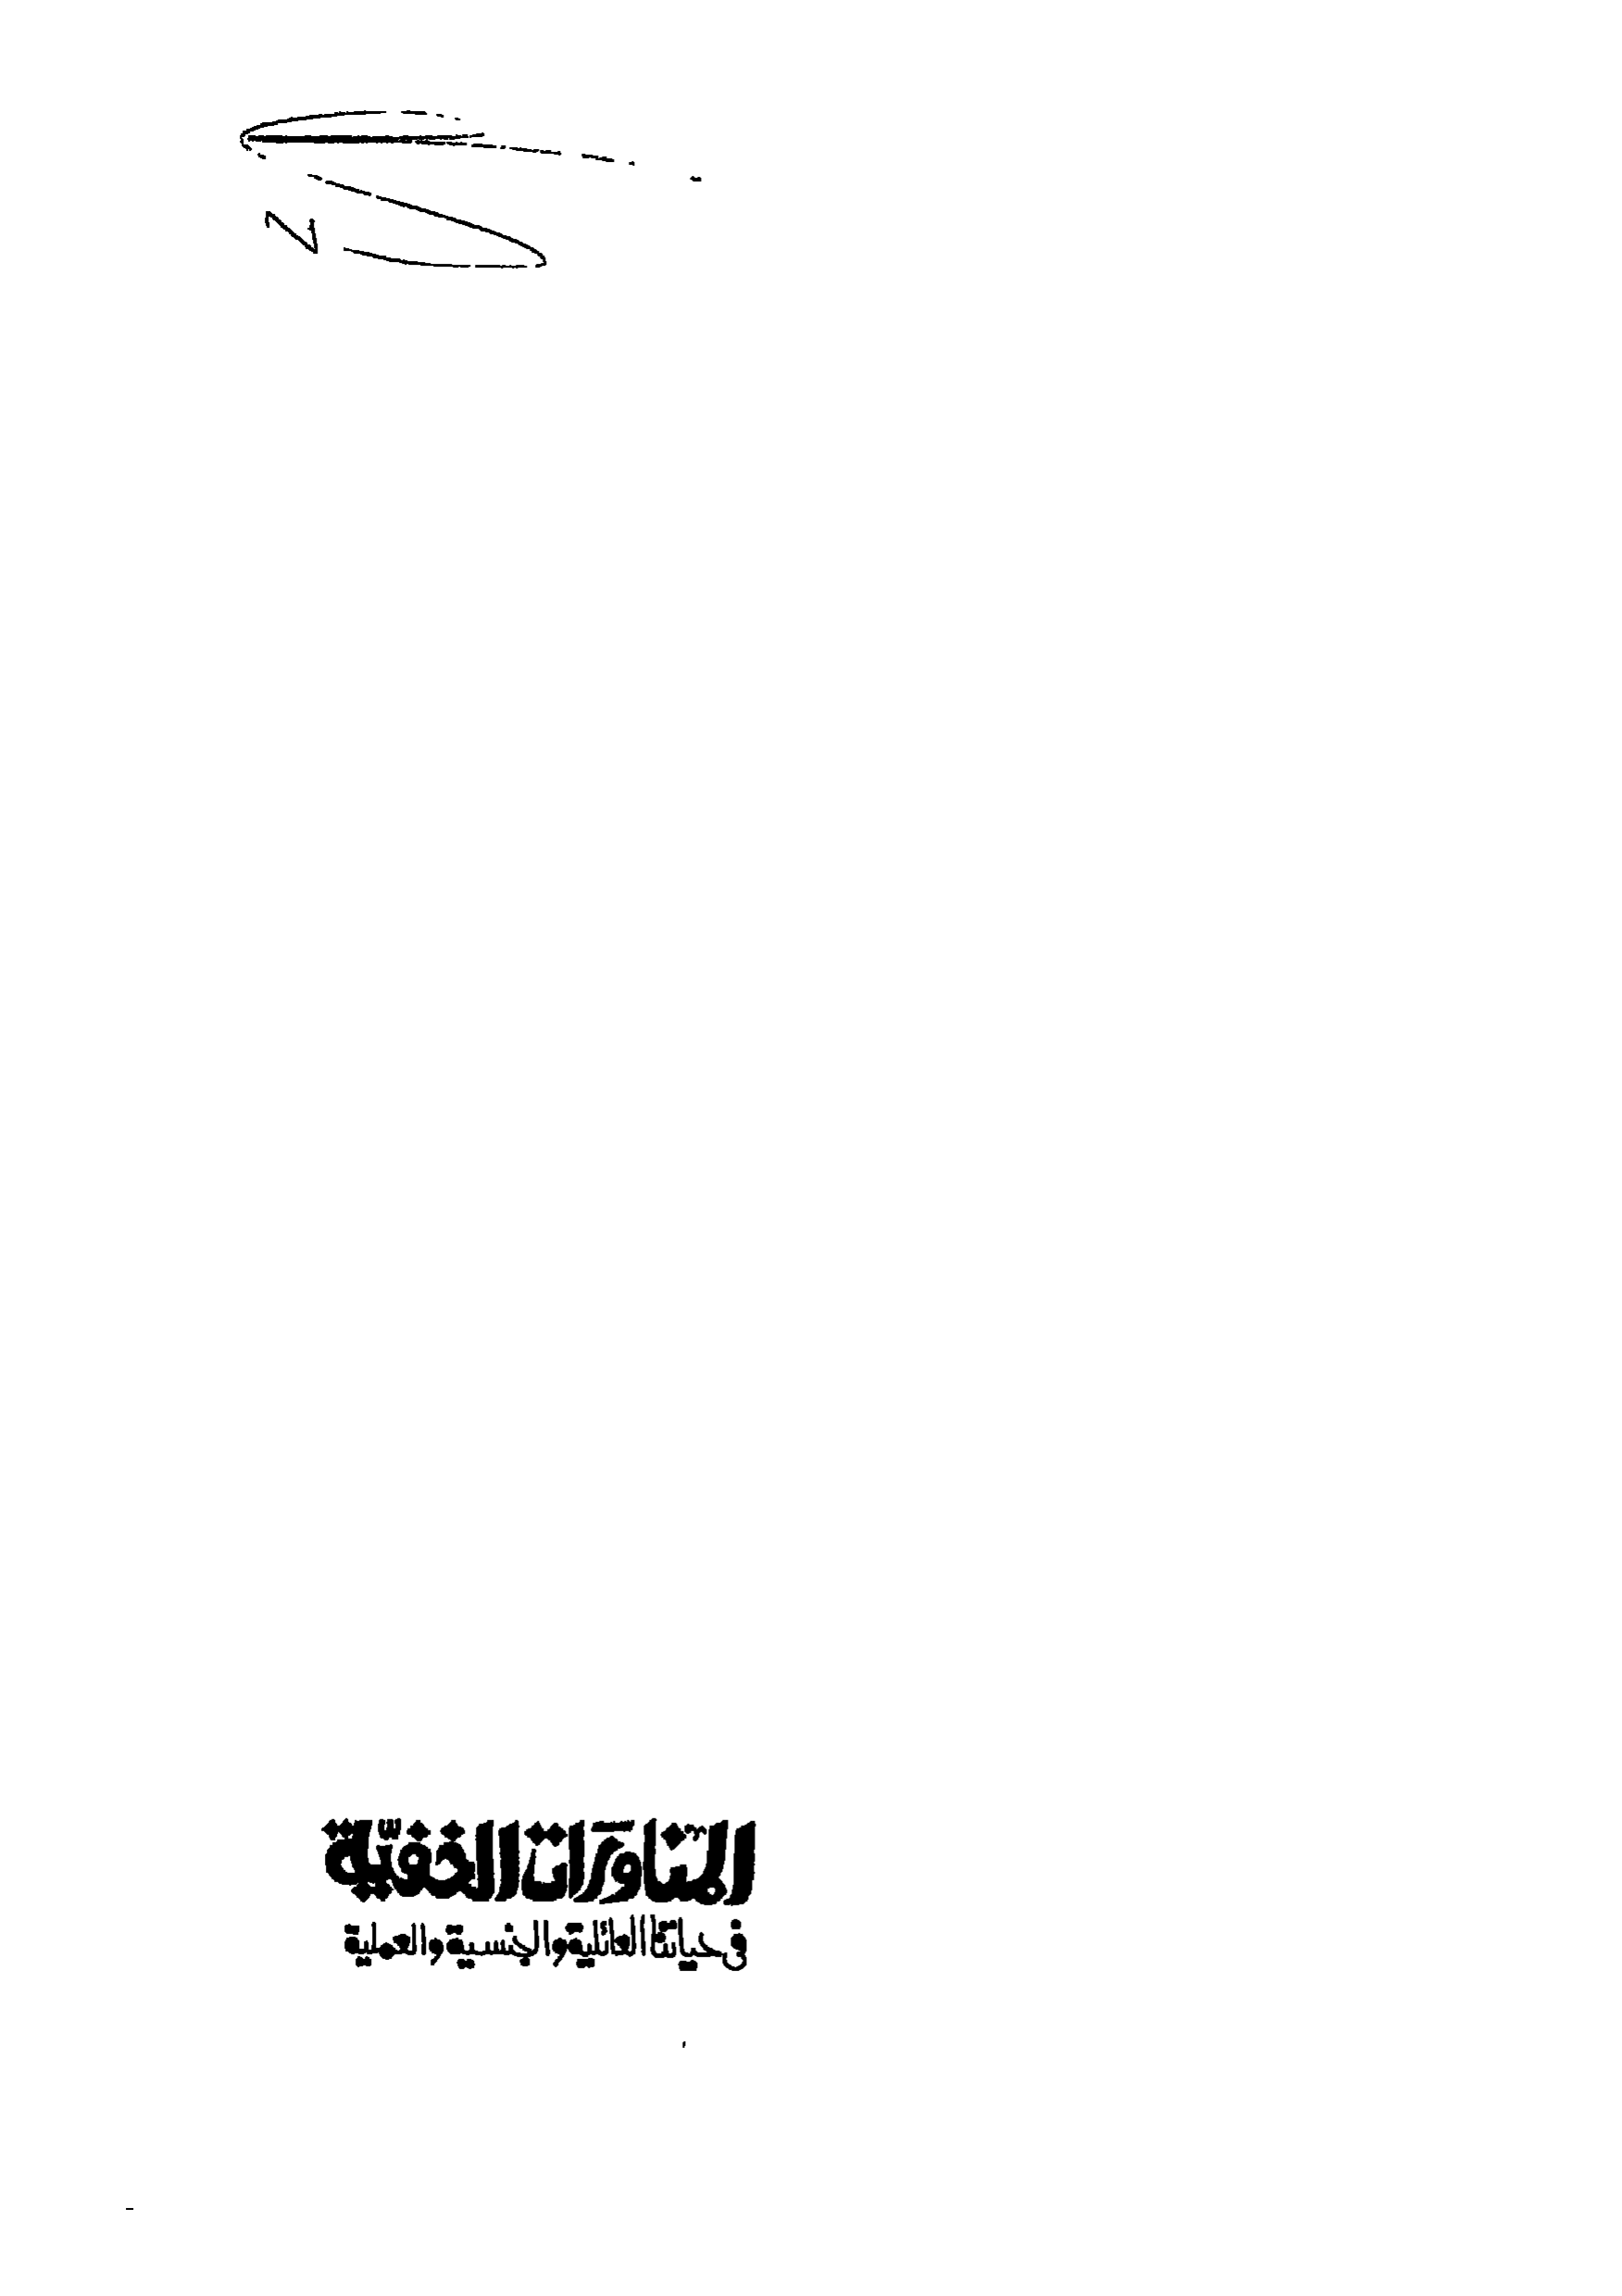 المناورات الخفيّة
في حياتنا العائلية والجنسية والعملية